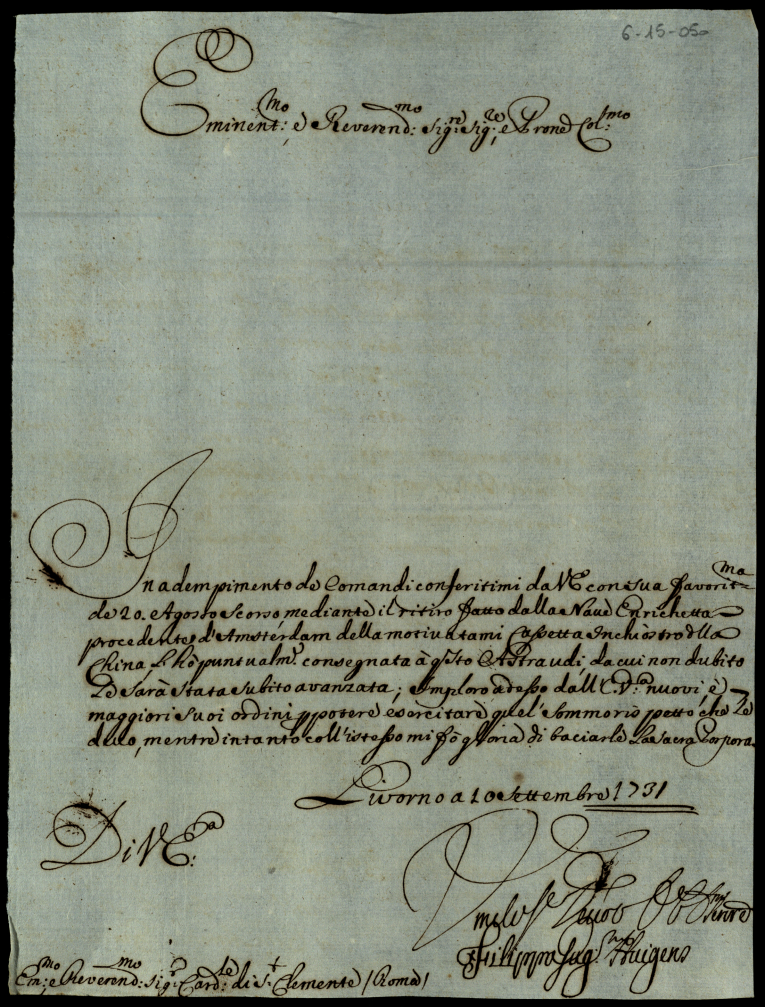 6-15-050
Eminent:mo e Reverend:mo Sig:re Sig:re e Prone Col:mo
In adempimento de Comandi conferitimi da VE con sua favorit:ma
de 20. Agosto scorso mediante il ritiro fatto dalla Nave Enrichetta
procedente d'Amsterdam della motivatami Cassetta Inchiostro dlla
China, l'hò puntualm:e consegnata à q:sto Astraudi, da cui non dubito
Le sarà stata subito avanzata; Imploro adesso dall' E.V:a nuovi, è
maggiori suoi ordini p potere esercitare quel' sommo rispetto che Le
devo, mentre intanto coll'istesso mi fò gloria di baciarle La sacra Porpora.
Livorno a 10 Settembre 1731
Di VE:a
Filippo Huigens
Em:mo e Reverend:mo Sig:r Card:le di S:t Clemente / Roma /